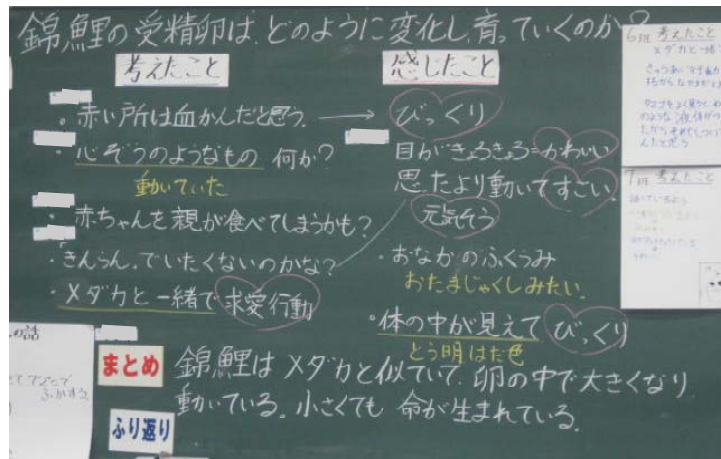 錦鯉の受精卵は、どのように変化し、育っていくのか?
考えたこと
・赤い所は血かんだと思う。
・心ぞうのようなもの 何か?
動いていた
・赤ちゃんを親が食べてしまうかも?
・きんらん。でいたくないのかな?
・メダカと一緒で求愛行動
感じたこと
びっくり
目がきょろきょろ=かわいい
思たより動いてすごい。
元気そう
・おなかのふくらみ
おたまじゃくしみたい。
・体の中が見えて びっくり
とう明はだ色
まとめ
錦鯉はメダカと似ていて、卵の中で大きくなり
動いている。小さくても 命が生まれている。
ふり返り
6班 考えたこと
メダカと一緒
7班 考えたこと
の話